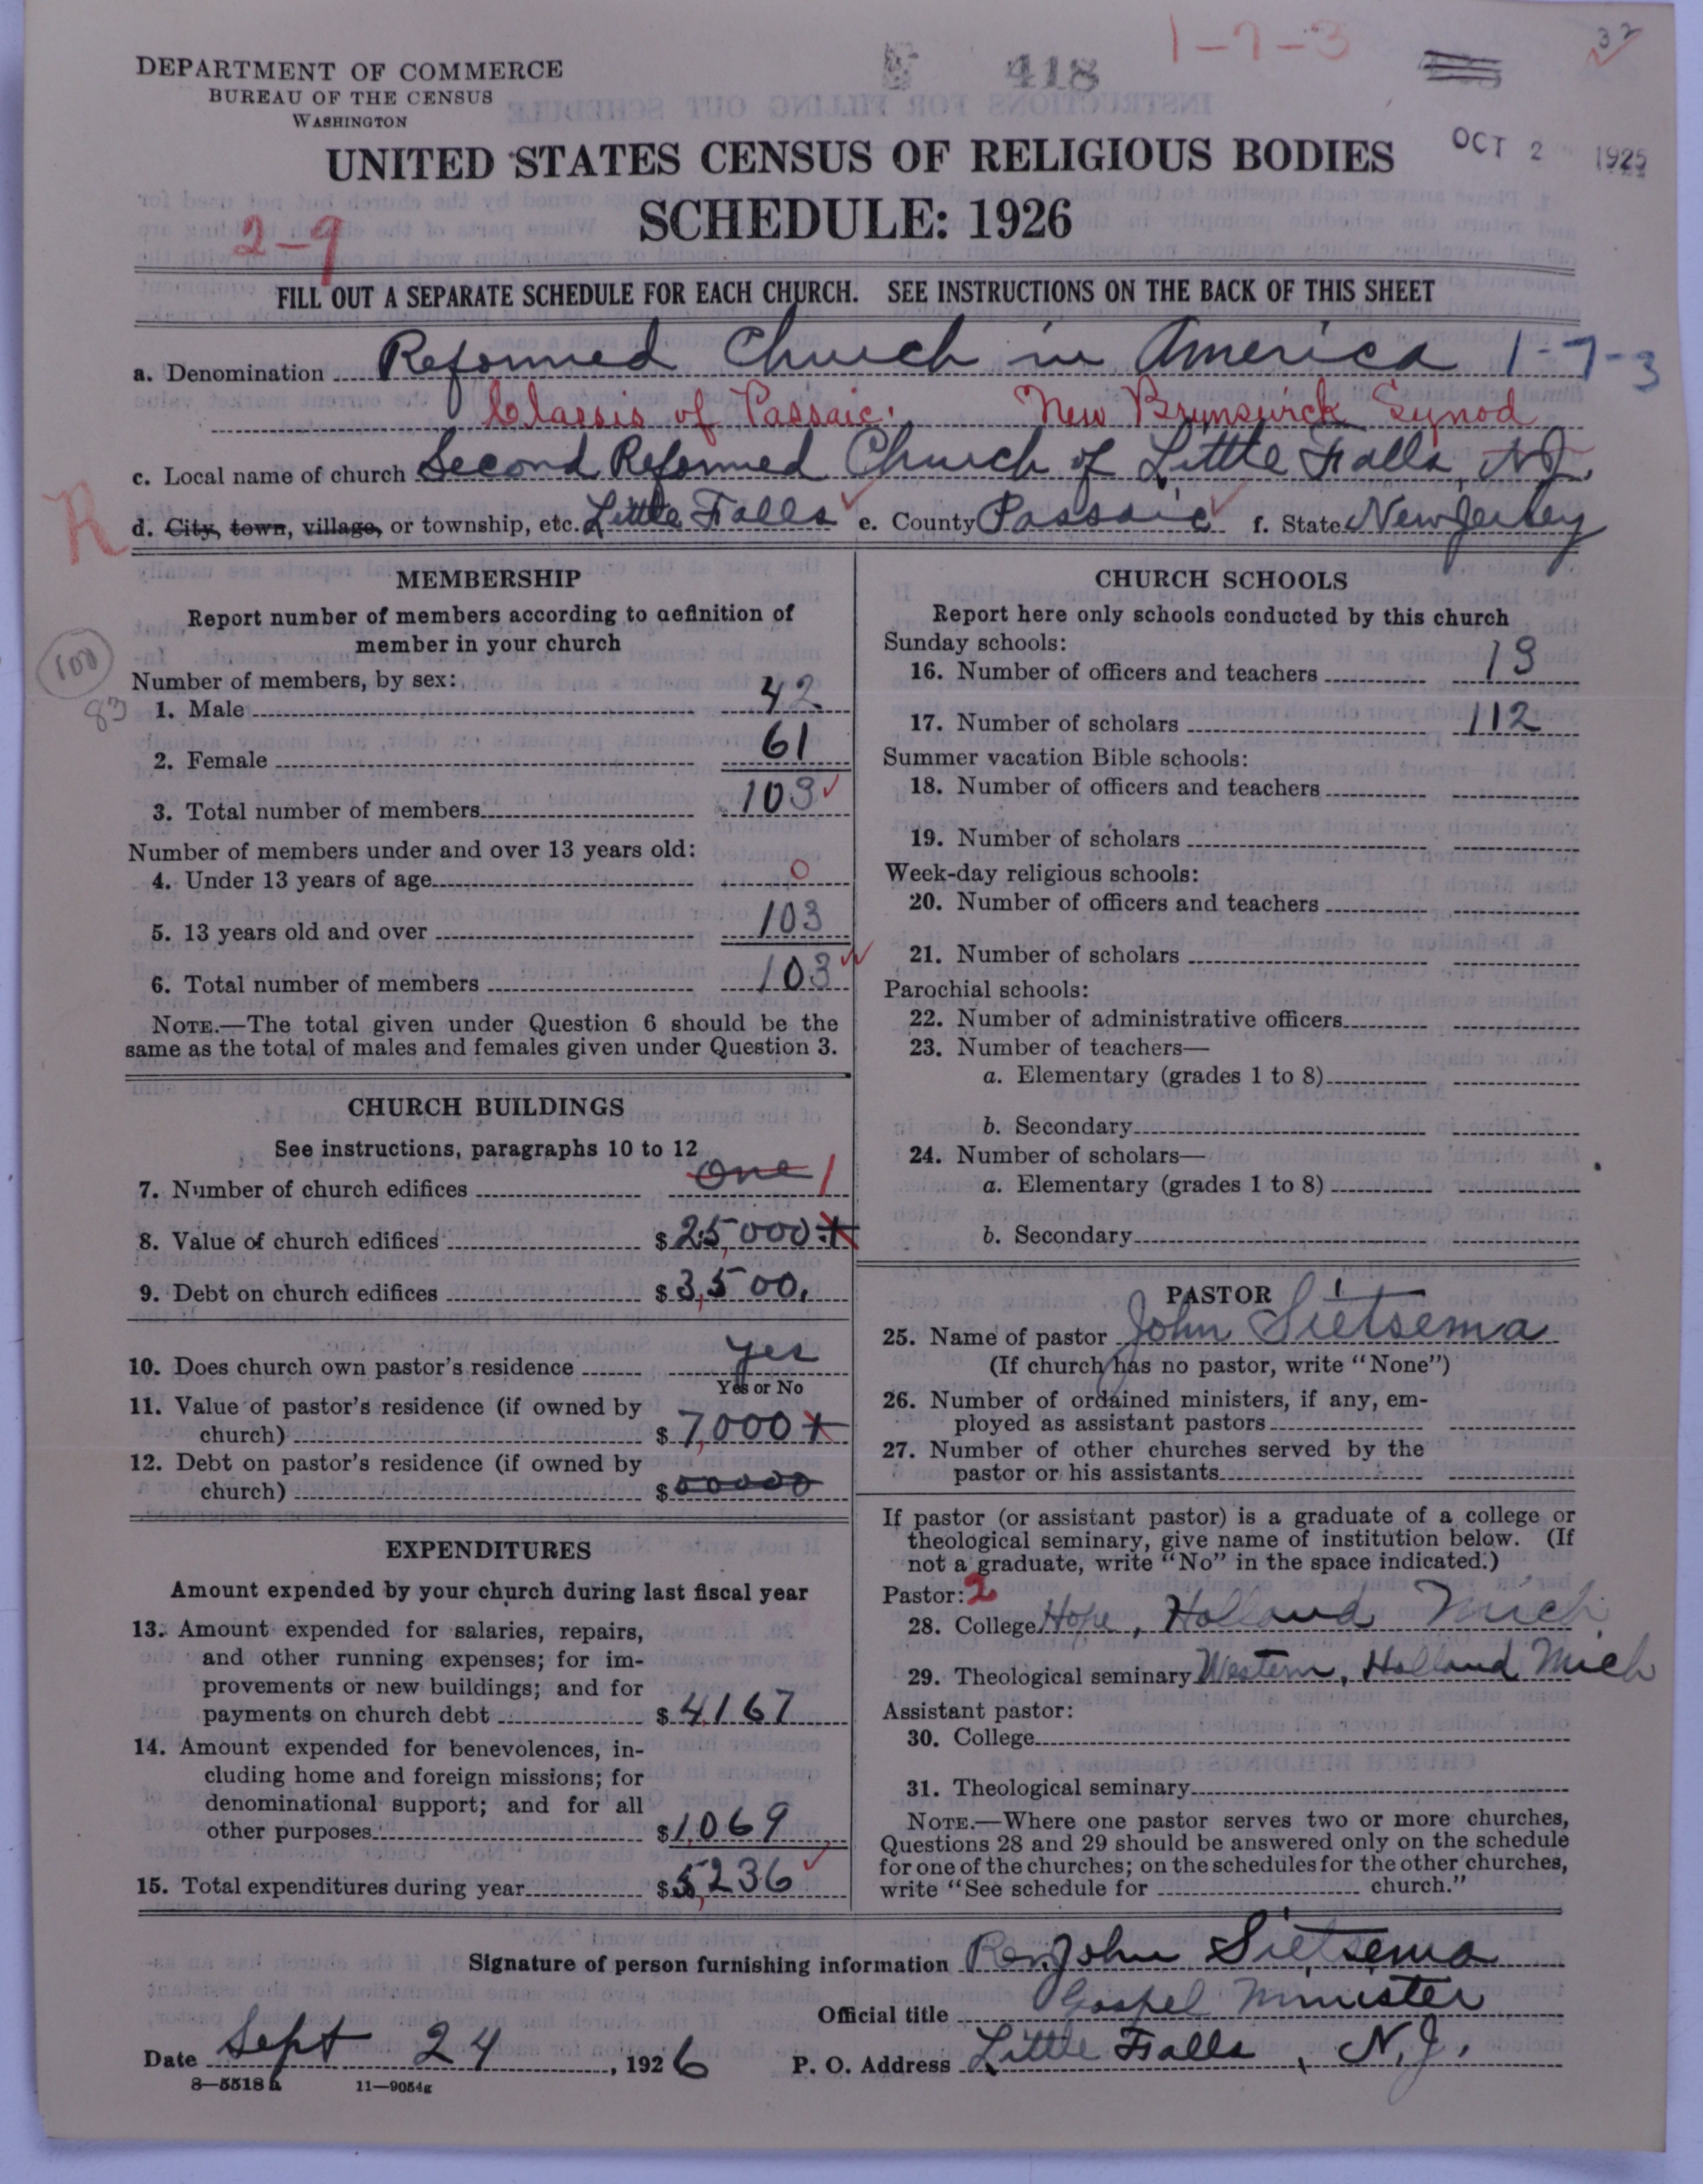 1-7-3
32
418
DEPARTMENT OF COMMERCE
BUREAU OF THE CENSUS
WASHINGTON
OCT 2 1925
UNITED STATES CENSUS OF RELIGIOUS BODIES
SCHEDULE: 1926
2-9
FILL OUT A SEPARATE SCHEDULE FOR EACH CHURCH. SEE INSTRUCTIONS ON THE BACK OF THIS SHEET
a. Denomination Reformed Church in America 1-7-3
Classis of Passaic. New Brunswick Synod
c. Local name of church Second Reformed Church of Little Falls, N.J.
R
d. City, town, village, or township, etc. Little Falls e. County Passaic f. State New Jersey
MEMBERSHIP
Report number of members according to definition of
member in your church
100
83
Number of members, by sex:
1. Male 42
2. Female 61
3. Total number of members 103
Number of members under and over 13 years old:
4. Under 13 years of age 0
5. 13 years old and over 103
6. Total number of members 103
NOTE.—The total given under Question 6 should be the
same as the total of males and females given under Question 3.
CHURCH BUILDINGS
See instructions, paragraphs 10 to 12
7. Number of church edifices One 1
8. Value of church edifices $25,000
9. Debt on church edifices $3,500.
10. Does church own pastor's residence Yes
Yes or No
11. Value of pastor's residence (if owned by
church) $7,000
12. Debt on pastor's residence (if owned by
church) $00000
EXPENDITURES
Amount expended by your church during last fiscal year
13. Amount expended for salaries, repairs,
and other running expenses; for im-
provements or new buildings; and for
payments on church debt $4,167
14. Amount expended for benevolences, in-
cluding home and foreign missions; for
denominational support; and for all
other purposes $1,069
15. Total expenditures during year $5,236
CHURCH SCHOOLS
Report here only schools conducted by this church
Sunday schools:
16. Number of officers and teachers 13
17. Number of scholars 112
Summer vacation Bible schools:
18. Number of officers and teachers
19. Number of scholars
Week-day religious schools:
20. Number of officers and teachers
21. Number of scholars
Parochial schools:
22. Number of administrative officers
23. Number of teachers—
a. Elementary (grades 1 to 8)
b. Secondary
24. Number of scholars—
a. Elementary (grades 1 to 8)
b. Secondary
PASTOR
25. Name of pastor John Sietsema
(If church has no pastor, write "None")
26. Number of ordained ministers, if any, em-
ployed as assistant pastors
27. Number of other churches served by the
pastor or his assistants
If pastor (or assistant pastor) is a graduate of a college or
theological seminary, give name of institution below. (If
not a graduate, write "No" in the space indicated.)
Pastor: 2
28. College Hope, Holland Mich
29. Theological seminary Western, Holland Mich
Assistant pastor:
30. College
31. Theological seminary
NOTE.—Where one pastor serves two or more churches,
Questions 28 and 29 should be answered only on the schedule
for one of the churches; on the schedules for the other churches,
write "See schedule for church."
Signature of person furnishing information Rev. John Sietsema
Official title Gospel Minister
Date Sept 24, 1926 P. O. Address Little Falls, N.J.
8—5518a 11—9054g